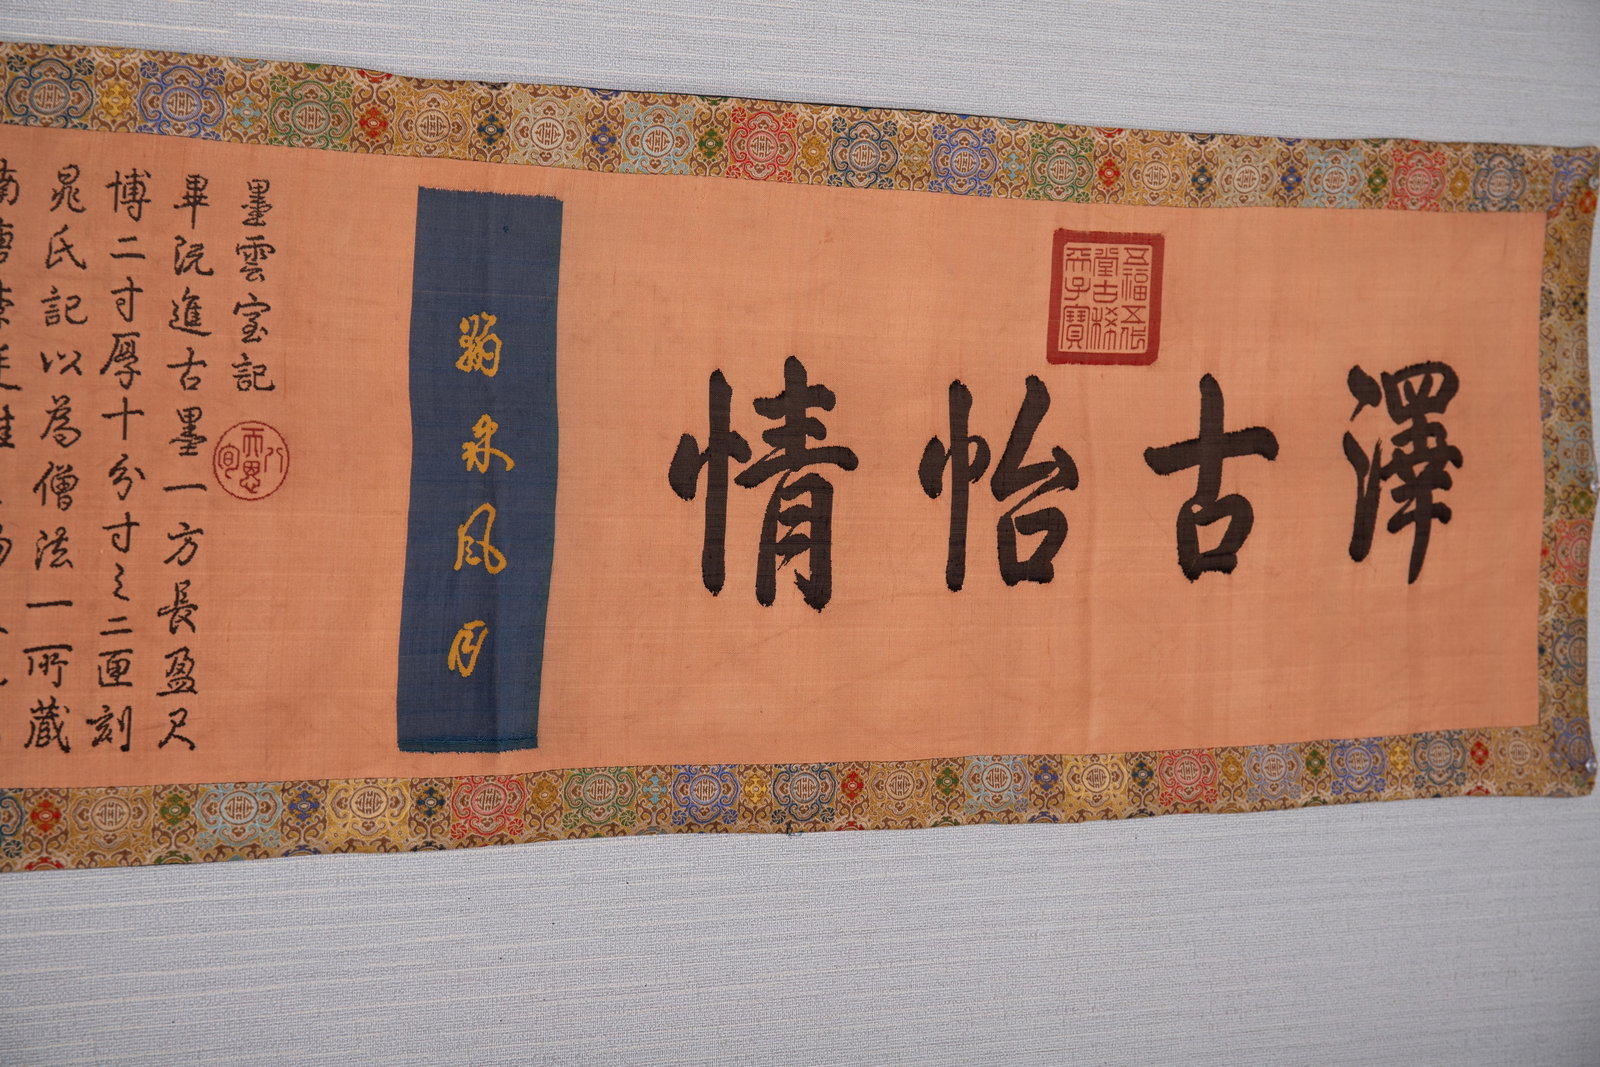 澤古怡情
五福五代
堂古稀
天子寶
墨雲室記
八
徵
畢沅進古墨一方長盈尺
博二寸厚十分寸之二匣刻
晁氏記以為僧法一所藏